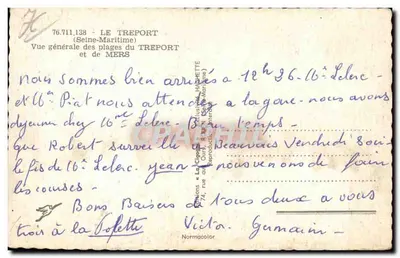 76.711.138 - LE TREPORT
(Seine-Maritime)
Vue générale des plages du TREPORT
et de MERS
nous sommes bien arrivés à 12h 36 - Mr Leleu -
et Mr Piat nous attendez à la gare - nous avons
déjeuner chez Mme Leleu - Beau temps -
que Robert surveille Beauvais Vendredi
le fils de Mr Leleu - jean - nous venons de faire
les courses -
Bons Baisers de tous deux a vous
trois à la
Victor Germaine -
Normacolor